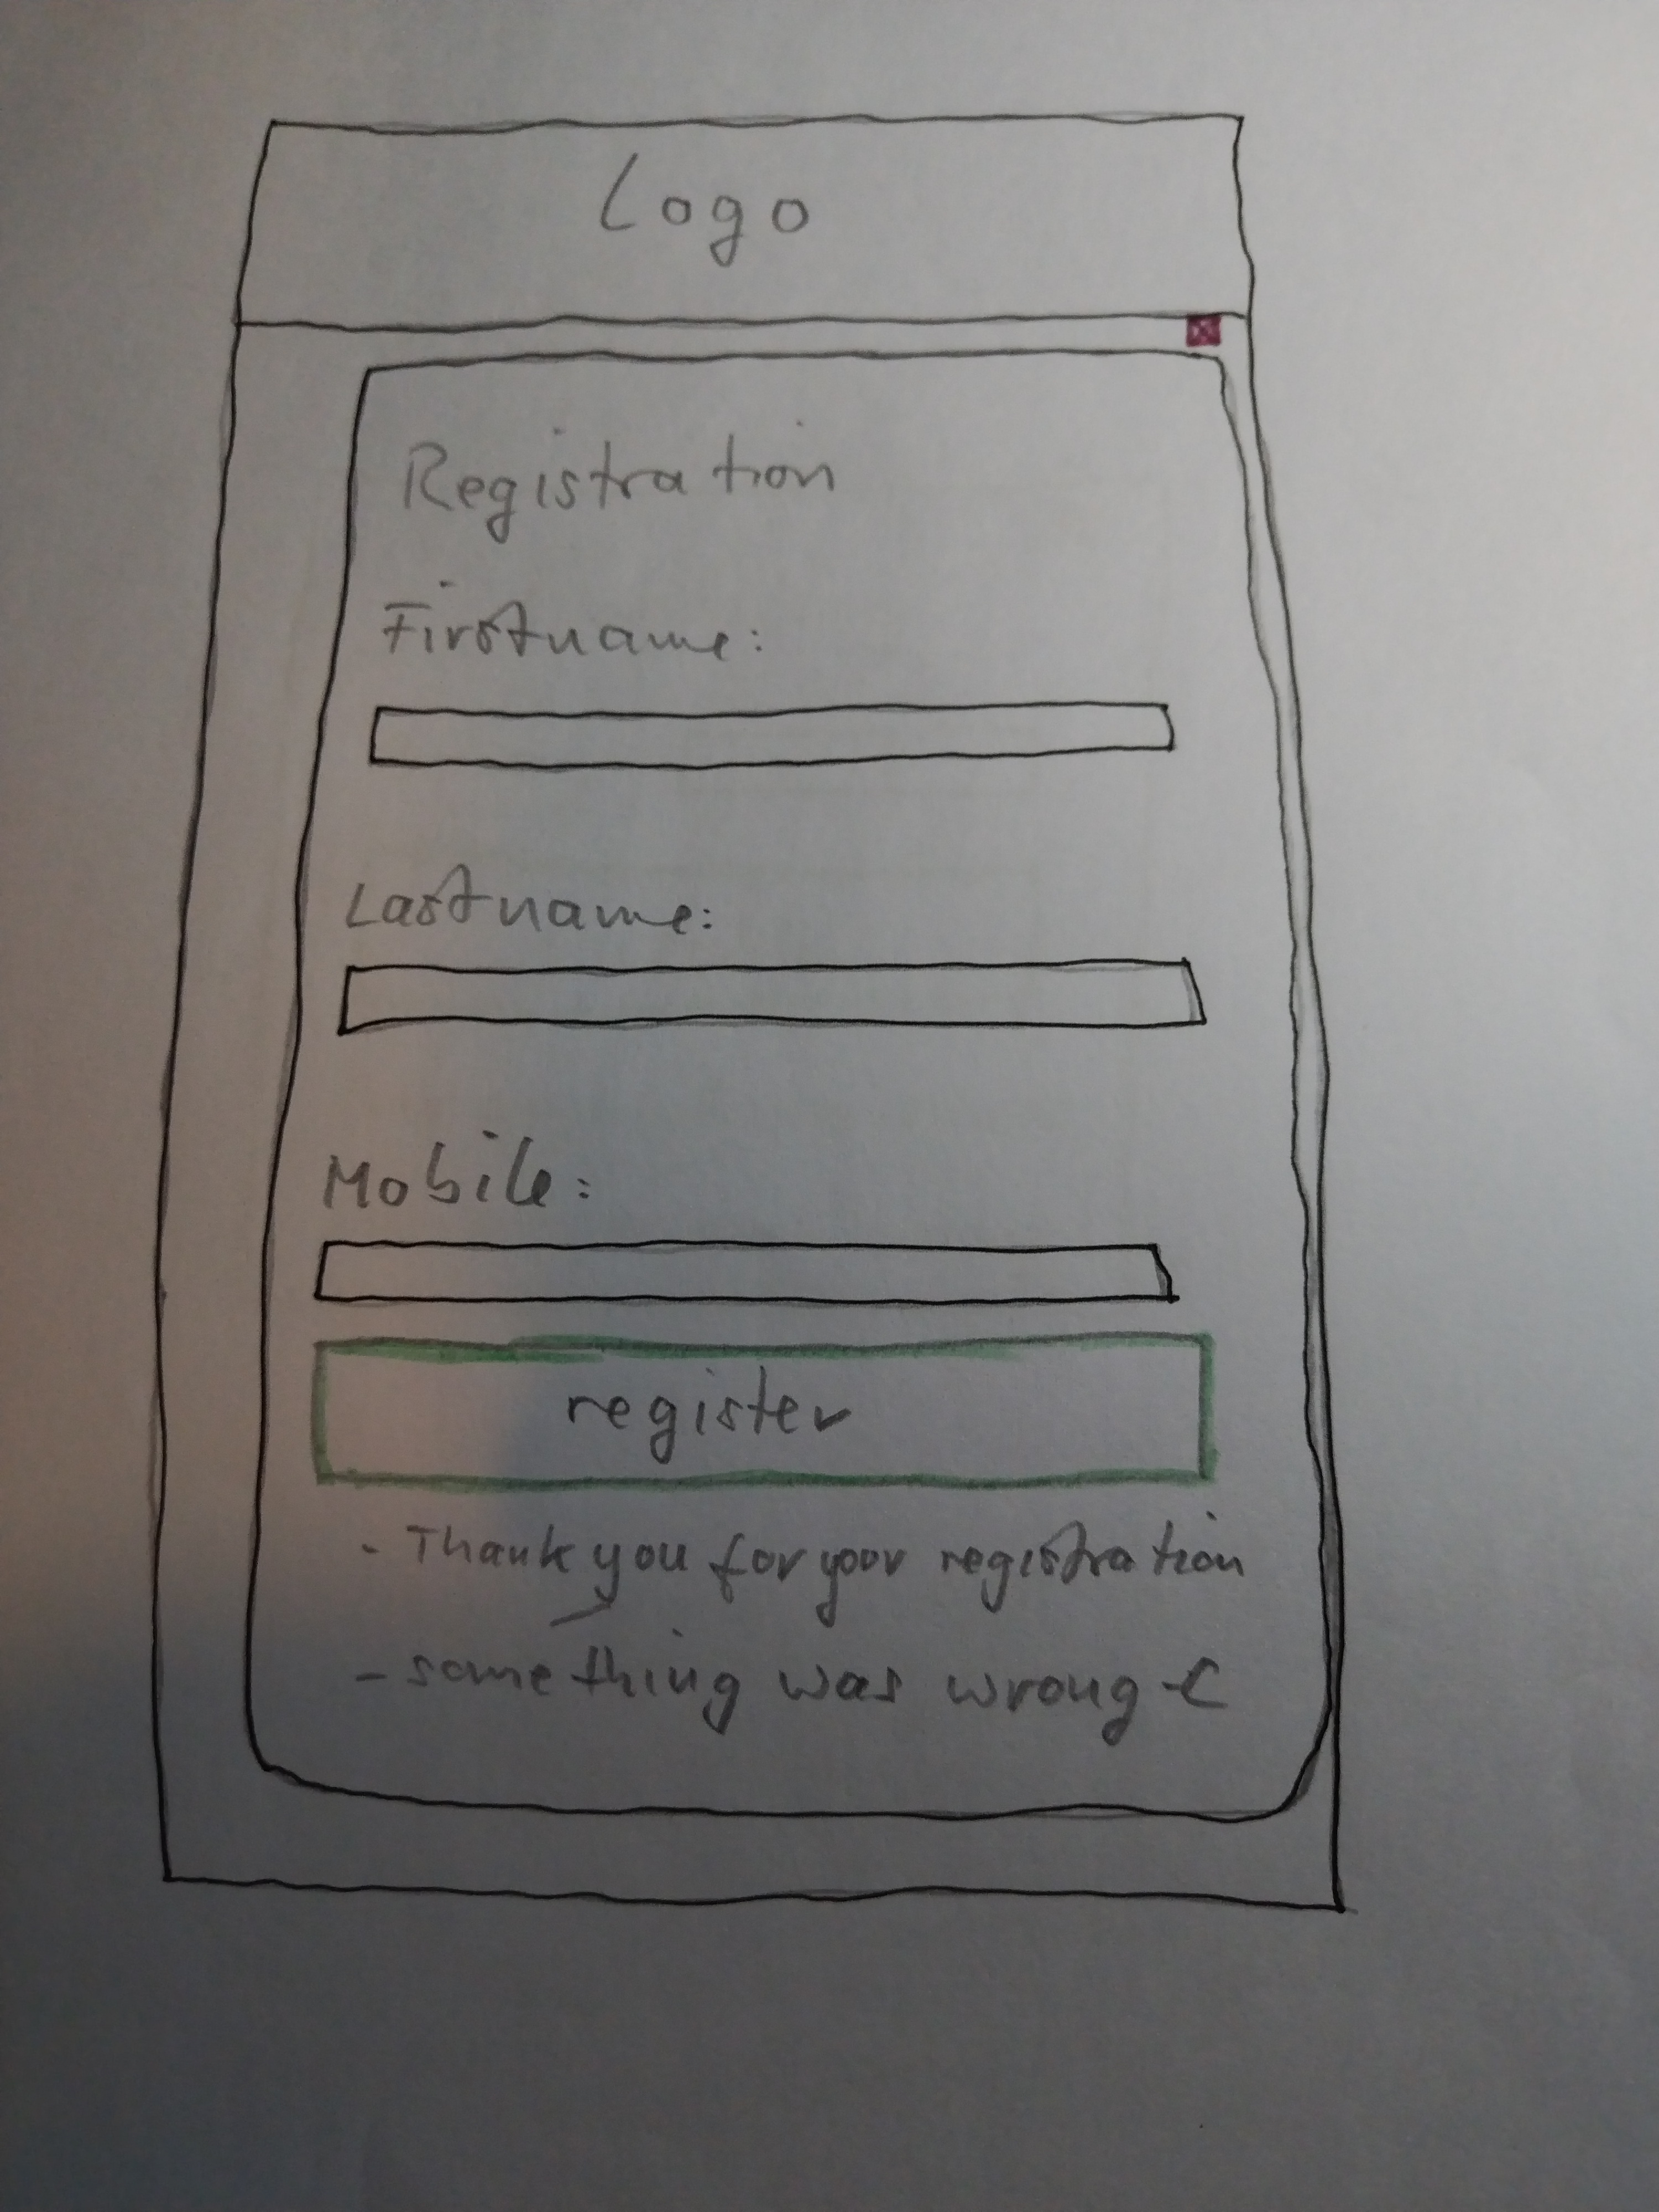 Logo
Registration
Firstname:
Lastname:
Mobile:
register
- Thank you for your registration
- something was wrong :(